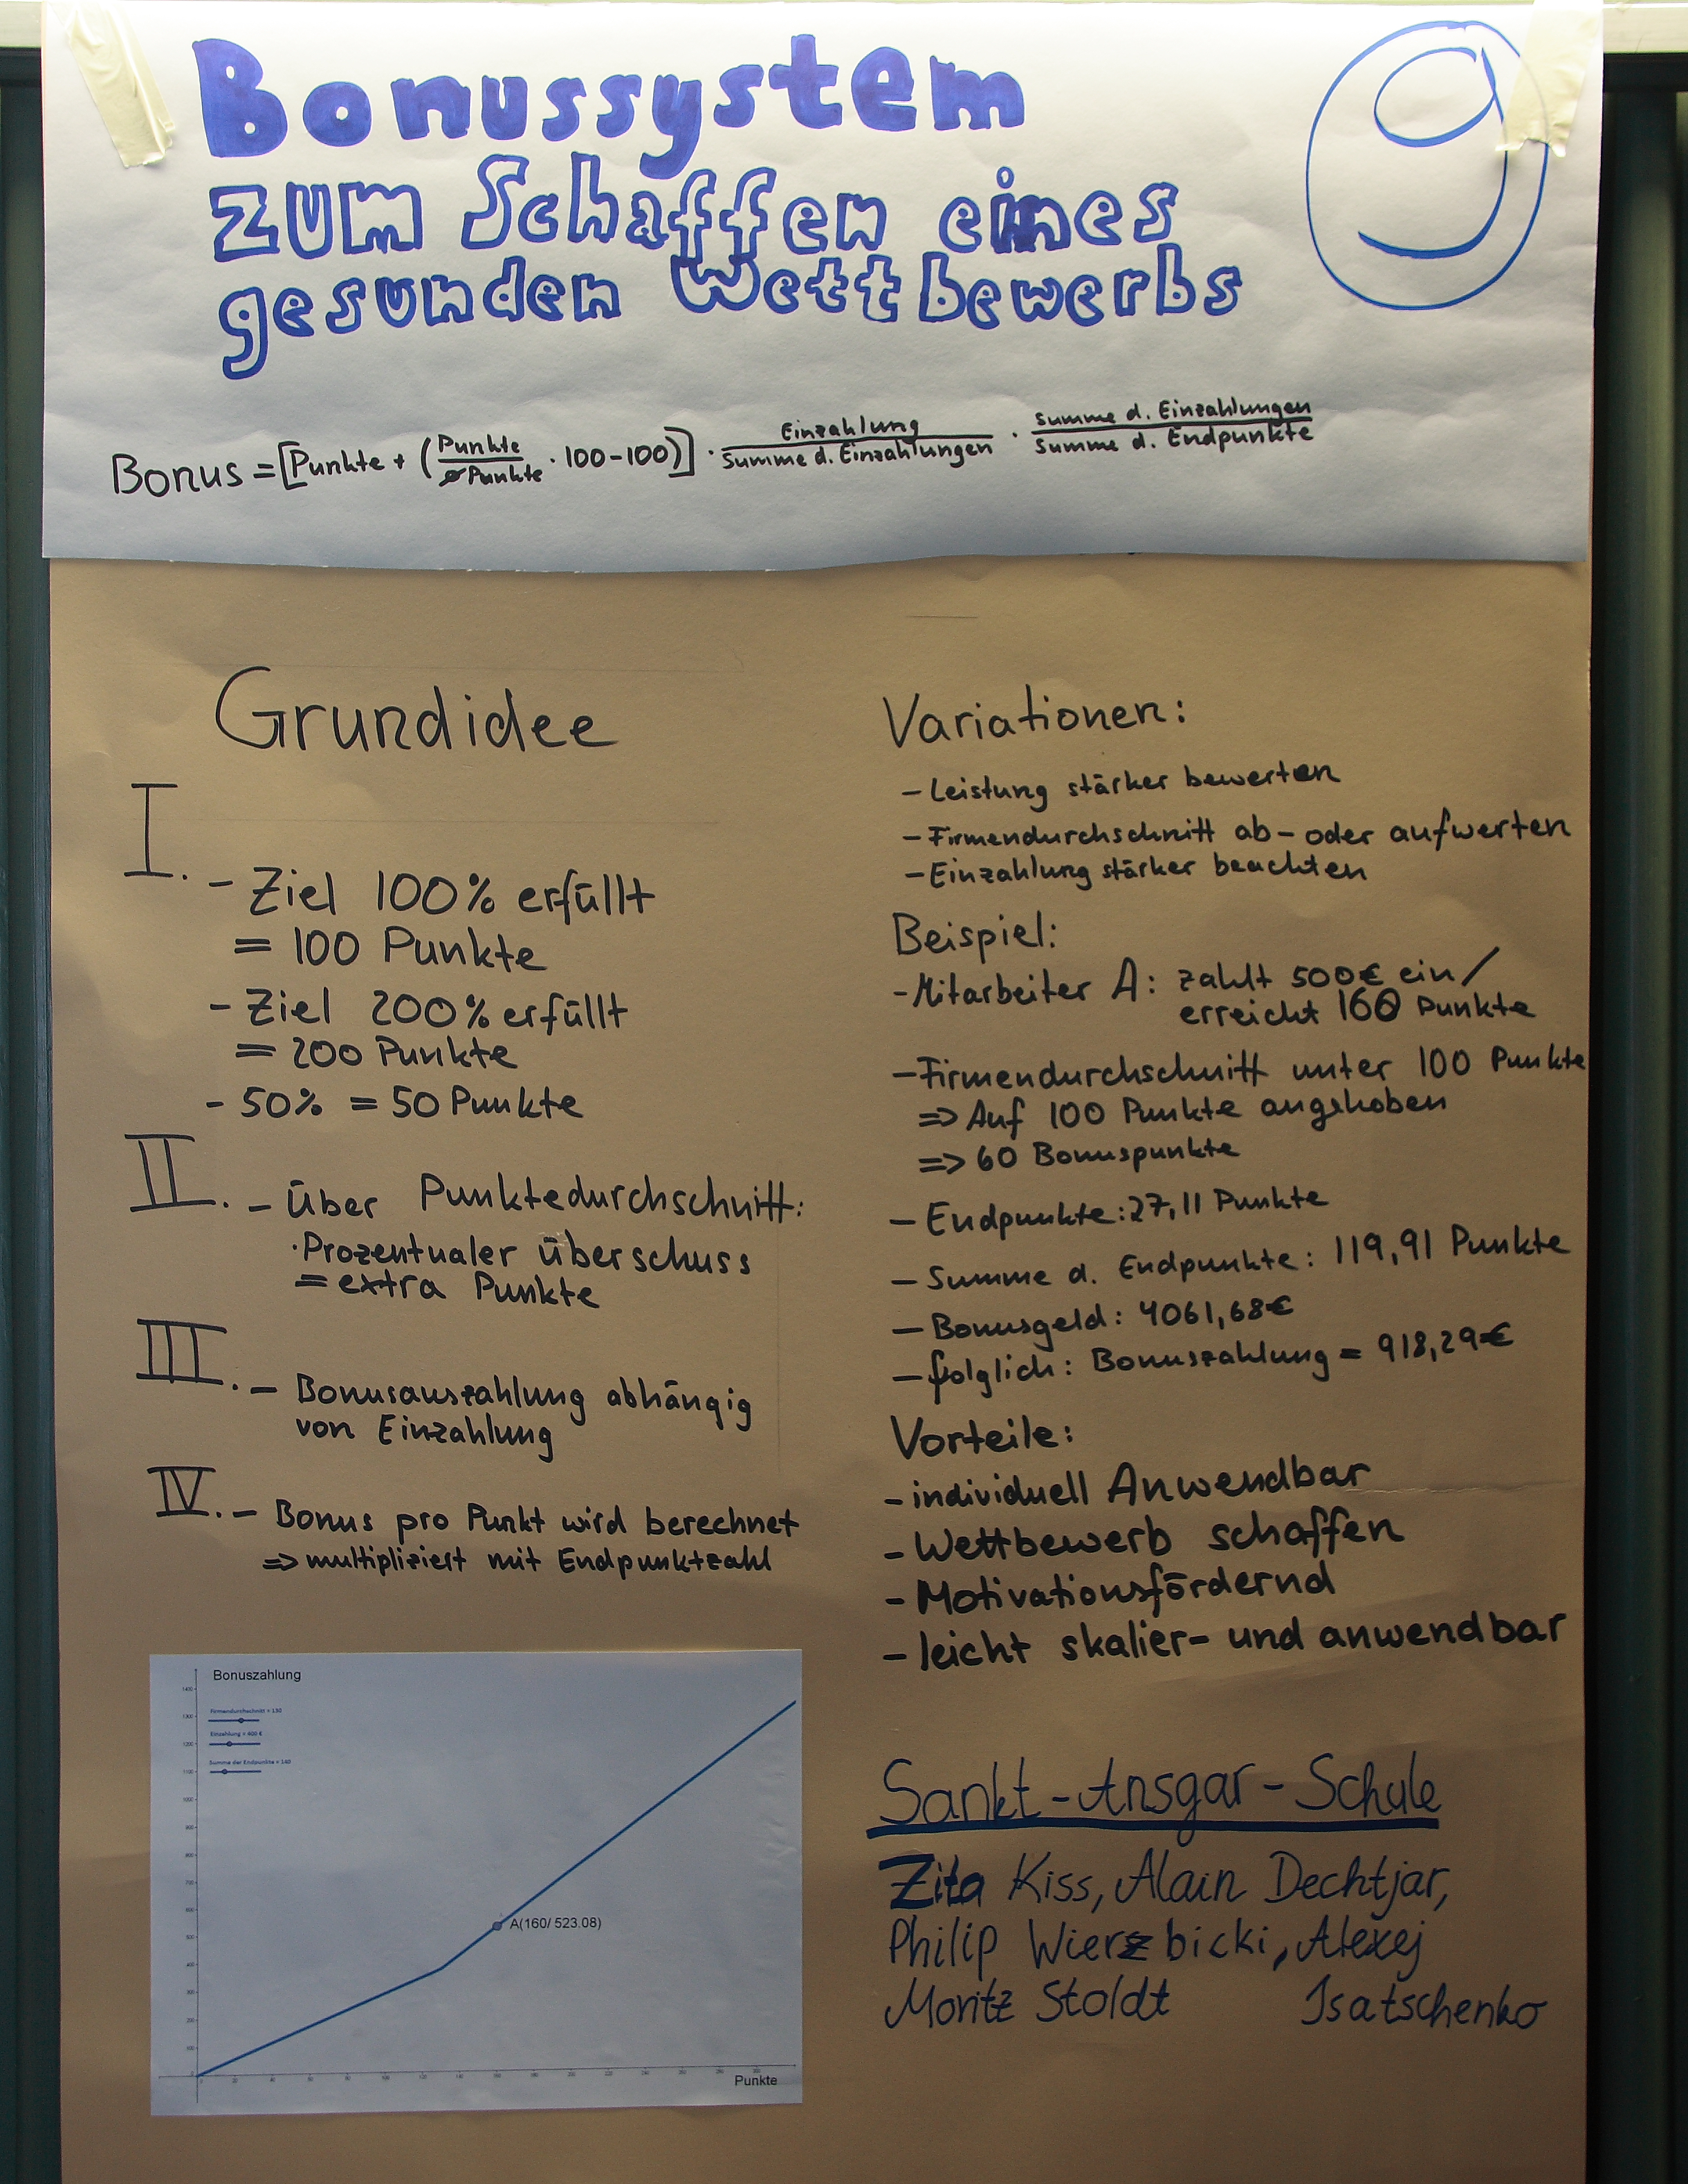 Bonussystem
zum Schaffen eines
gesunden Wettbewerbs
9
Bonus = [Punkte + (Punkte / ⌀Punkte · 100 - 100)] · Einzahlung / Summe d. Einzahlungen · Summe d. Einzahlungen / Summe d. Endpunkte
Grundidee
I. - Ziel 100% erfüllt
= 100 Punkte
- Ziel 200% erfüllt
= 200 Punkte
- 50% = 50 Punkte
II. - Über Punktedurchschnitt:
· Prozentualer überschuss
= extra Punkte
III. - Bonusauszahlung abhängig
von Einzahlung
IV. - Bonus pro Punkt wird berechnet
=> multipliziert mit Endpunktzahl
Variationen:
- Leistung stärker bewerten
- Firmendurchschnitt ab- oder aufwerten
- Einzahlung stärker beachten
Beispiel:
- Mitarbeiter A: zahlt 500€ ein/
erreicht 160 Punkte
- Firmendurchschnitt unter 100 Punkte
=> Auf 100 Punkte angehoben
=> 60 Bonuspunkte
- Endpunkte: 27,11 Punkte
- Summe d. Endpunkte: 119,91 Punkte
- Bonusgeld: 4061,68€
- folglich: Bonuszahlung = 918,29€
Vorteile:
- individuell Anwendbar
- Wettbewerb schaffen
- Motivationsfördernd
- leicht skalier- und anwendbar
Bonuszahlung
Firmendurchschnitt = 130
Einzahlung = 400 €
Summe der Endpunkte = 160
A(160/ 523.08)
Punkte
Sankt-Ansgar-Schule
Zita Kiss, Alain Dechtjar,
Philip Wierzbicki, Alexej
Moritz Stoldt Isatschenko